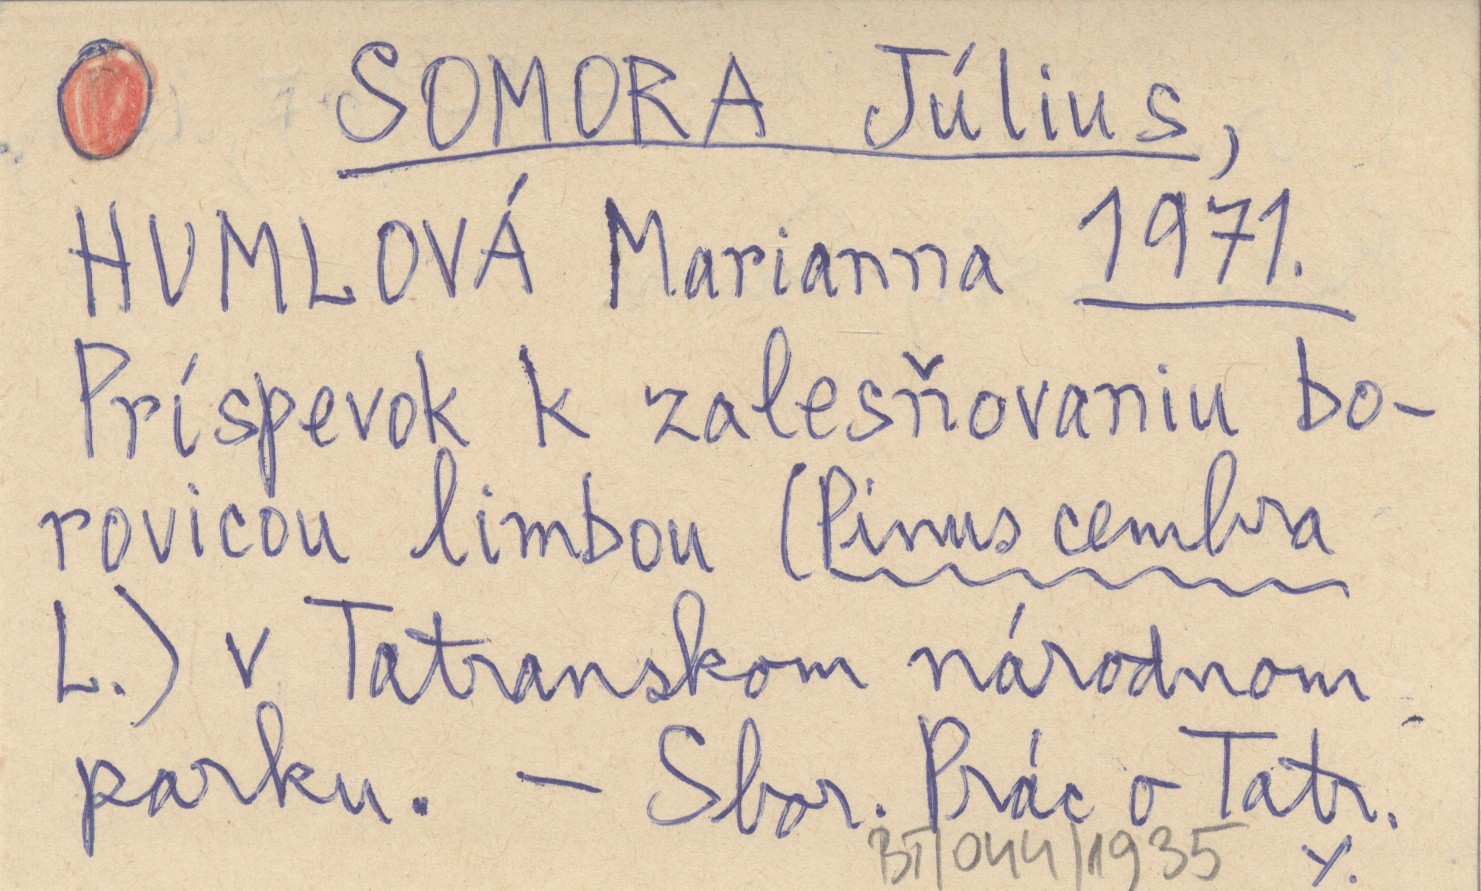 SOMORA Július,
HUMLOVÁ Marianna 1971.
Príspevok k zalesňovaniu bo-
rovicou limbou (Pinus cembra
L.) v Tatranskom národnom
parku. – Sbor. Prác o Tatr.
BT/044/1935